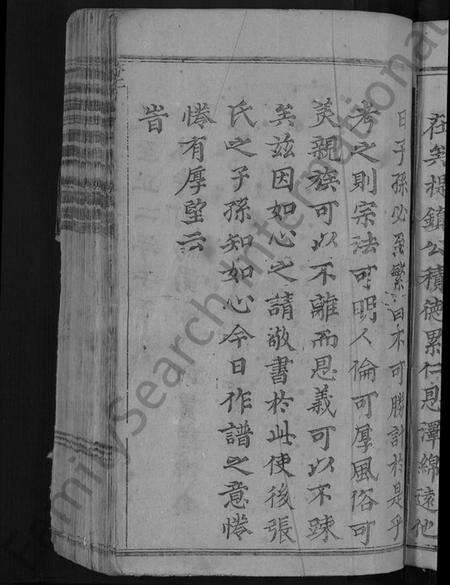 在矣提鎮公積德累仁恩澤綿遠他
日子孫必愈繁冐不可勝計於是乎
考之則宗法可明人倫可厚風俗可
美親族可以不離而恩義可以不踈
矣茲因如心之請敬書於此使後張
氏之子孫知如心今日作譜之意惓
惓有厚望云
旹
FamilySearch International